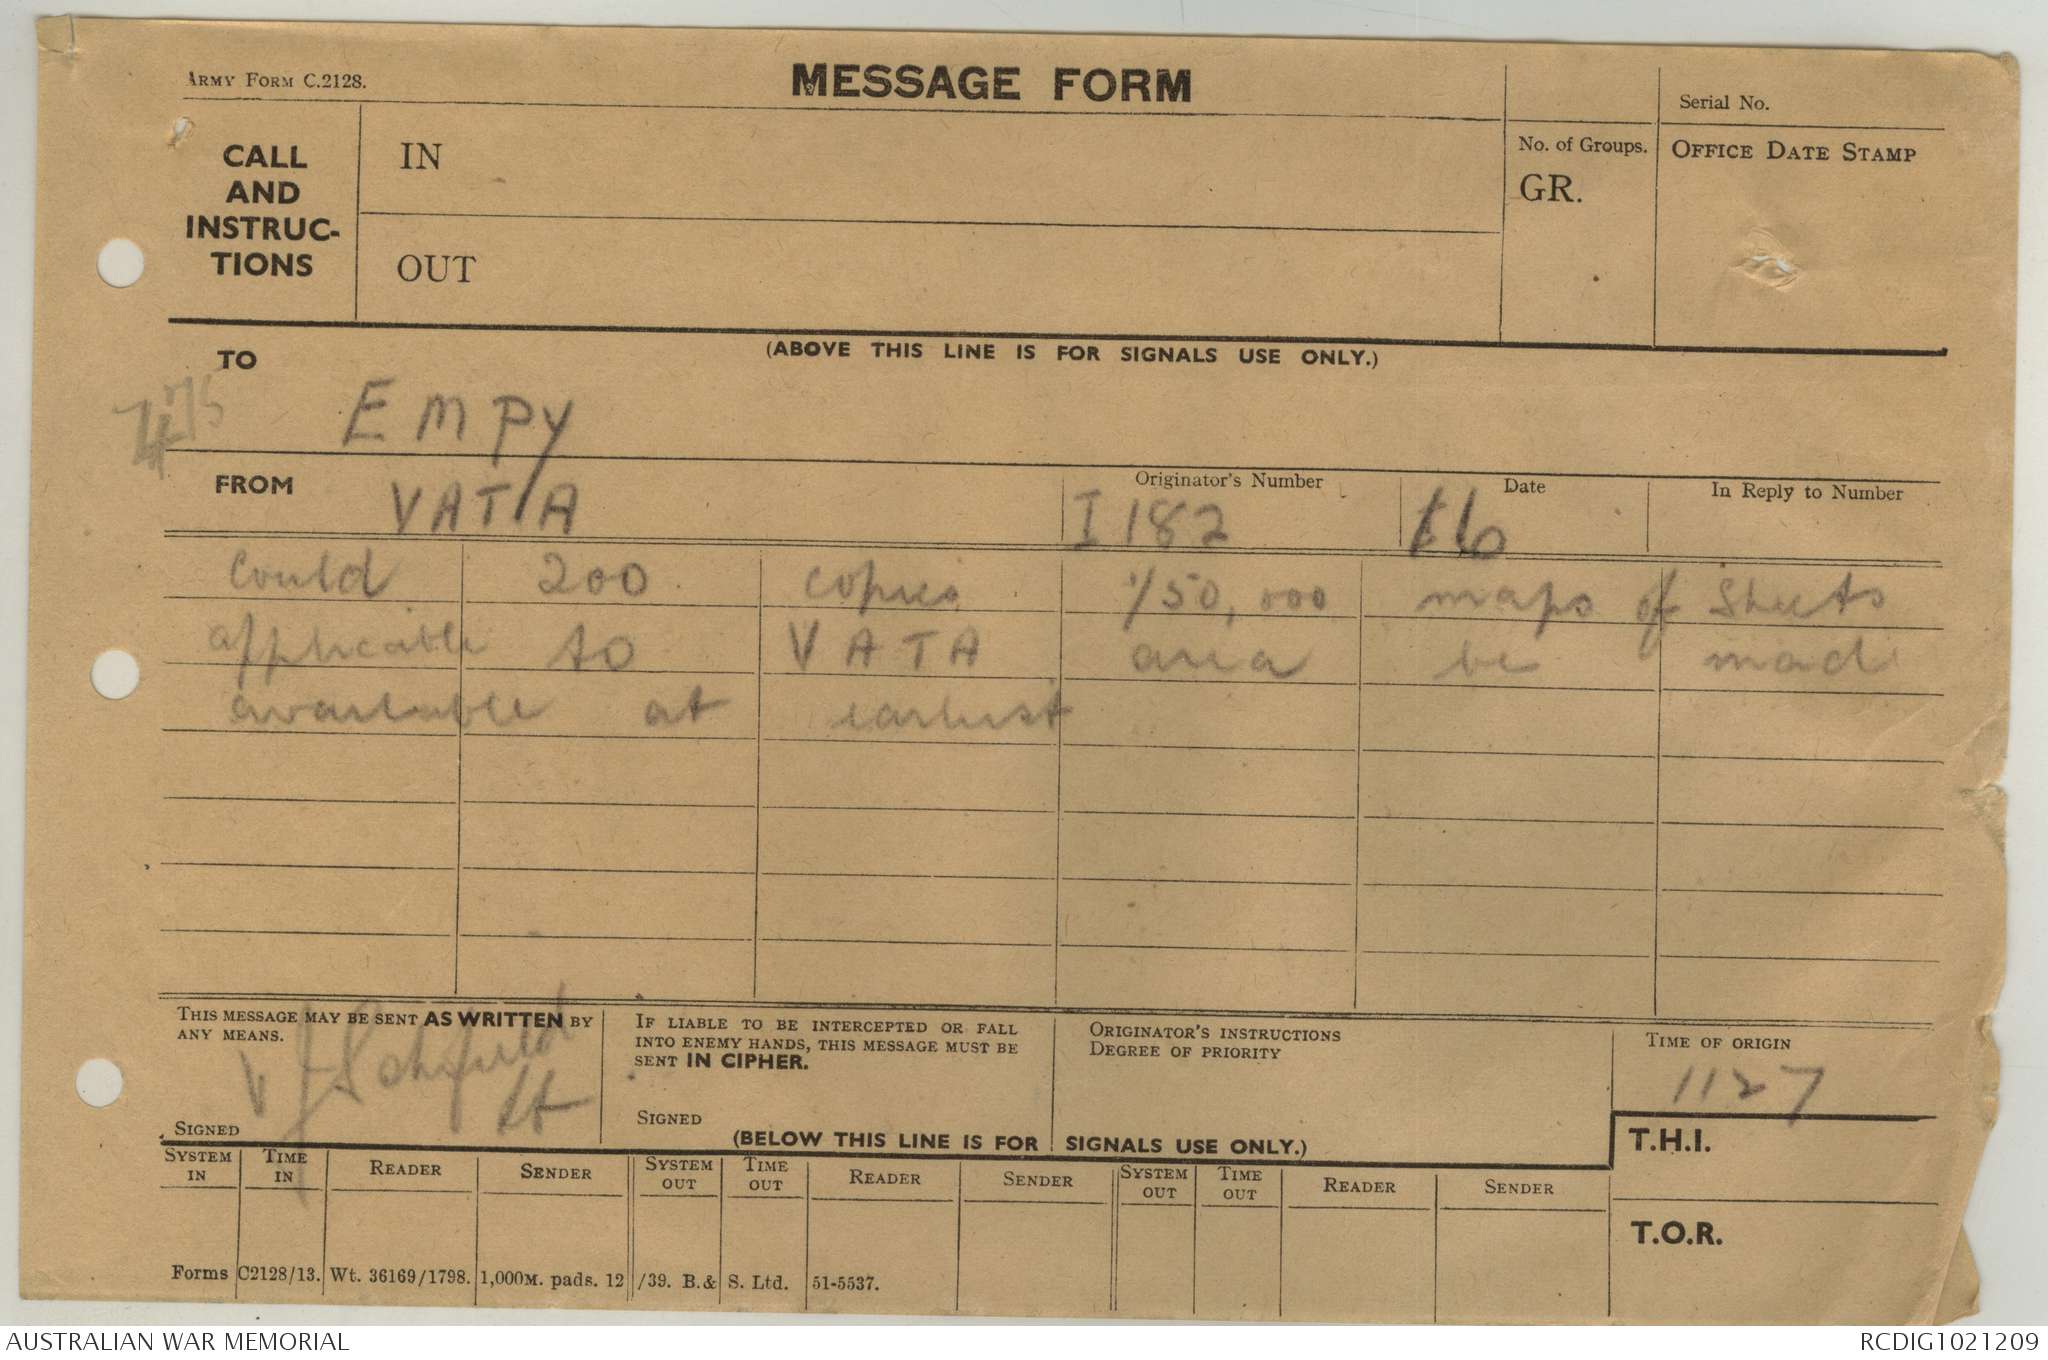 ARMY FORM C.2128.
MESSAGE FORM
Serial No.
CALL AND INSTRUC-TIONS
IN
OUT
No. of Groups.
GR.
OFFICE DATE STAMP
(ABOVE THIS LINE IS FOR SIGNALS USE ONLY.)
TO
EMPY
FROM
VATA
Originator's Number
I 182
Date
16
In Reply to Number
Could 200 copies 1/50,000 maps of Sheets
applicable to VATA area be made
available at earliest
THIS MESSAGE MAY BE SENT AS WRITTEN BY
ANY MEANS.
Schofield
Lt
SIGNED
IF LIABLE TO BE INTERCEPTED OR FALL
INTO ENEMY HANDS, THIS MESSAGE MUST BE
SENT IN CIPHER.
SIGNED
ORIGINATOR'S INSTRUCTIONS
DEGREE OF PRIORITY
TIME OF ORIGIN
1127
(BELOW THIS LINE IS FOR SIGNALS USE ONLY.)
T.H.I.
SYSTEM IN TIME IN READER SENDER SYSTEM OUT TIME OUT READER SENDER SYSTEM OUT TIME OUT READER SENDER
T.O.R.
Forms C2128/13. Wt. 36169/1798. 1,000M. pads. 12/39. B.& S. Ltd. 51-5537.
AUSTRALIAN WAR MEMORIAL
RCDIG1021209